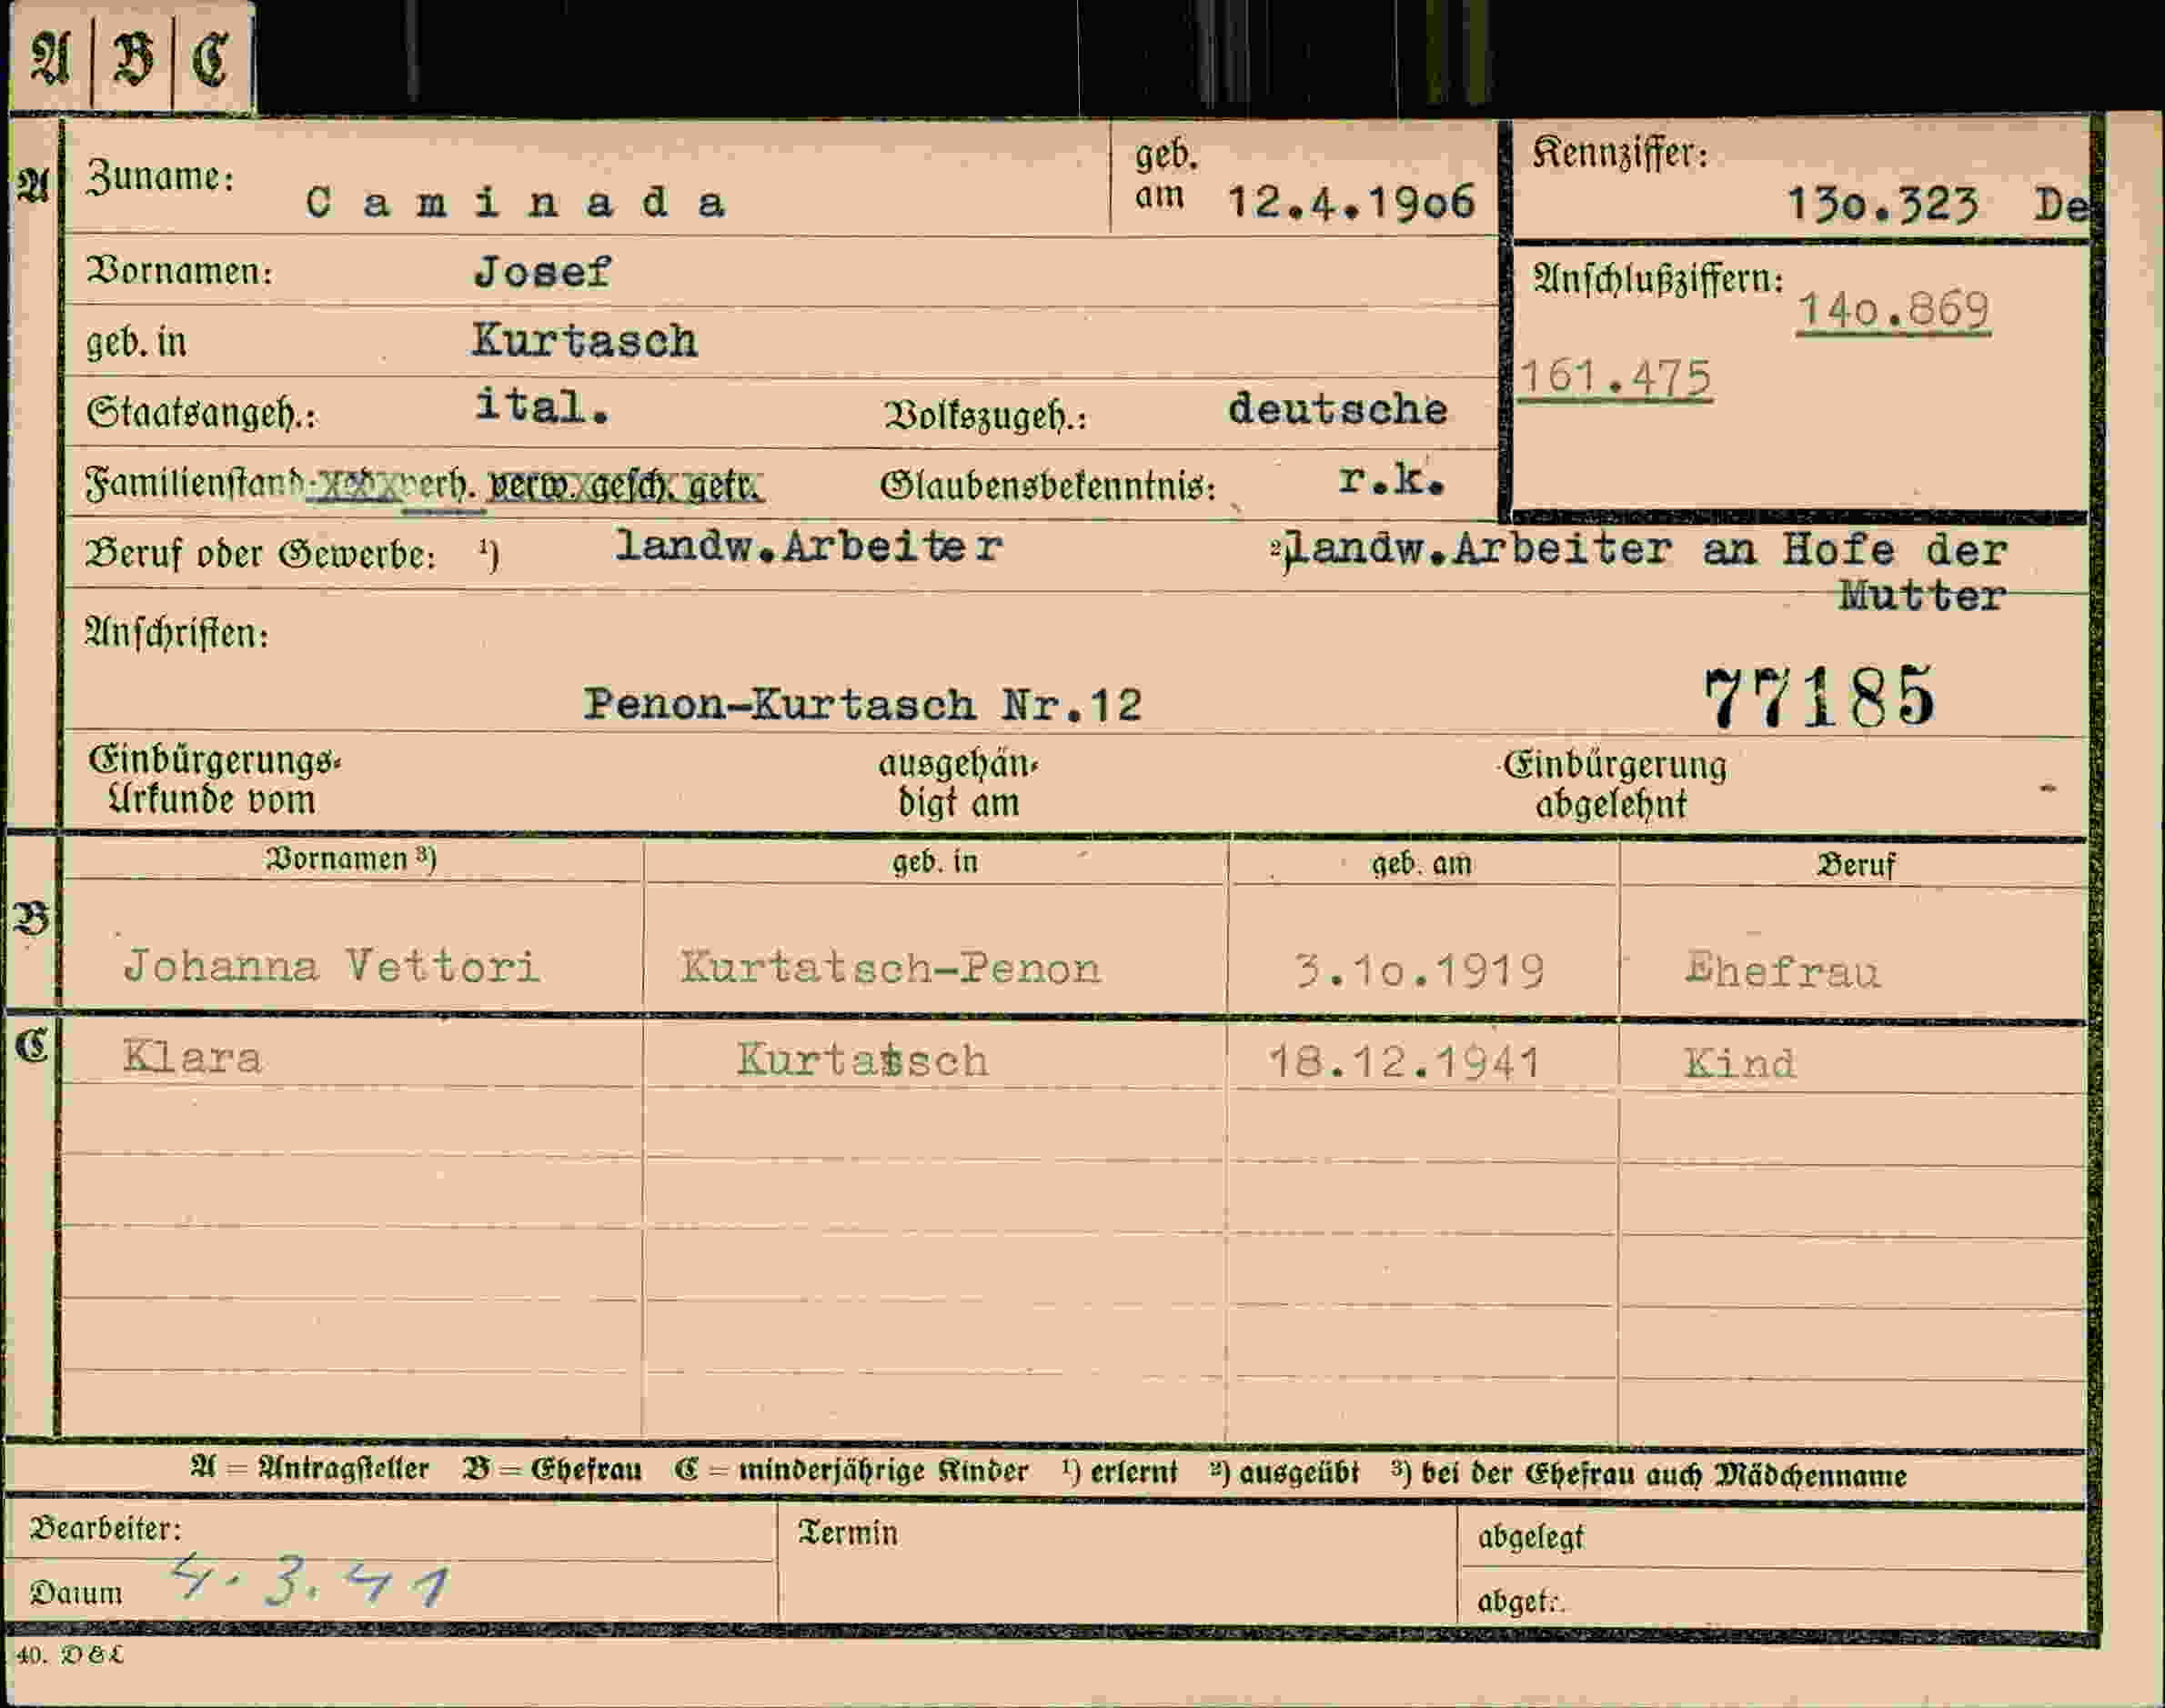 A B C
A Zuname: Caminada geb. am 12.4.1906 Kennziffer: 130.323 De
Vornamen: Josef Anschlußziffern: 140.869
geb. in Kurtasch 161.475
Staatsangeh.: ital. Volkszugeh.: deutsche
Familienstand: verh. verw. gesch. getr. Glaubensbekenntnis: r.k.
Beruf oder Gewerbe: ¹) landw.Arbeiter ²) landw.Arbeiter an Hofe der
Mutter
Anschriften:
Penon-Kurtasch Nr.12 77185
Einbürgerungs- ausgehän- Einbürgerung
Urkunde vom digt am abgelehnt
Vornamen ³) geb. in geb. am Beruf
B Johanna Vettori Kurtatsch-Penon 3.10.1919 Ehefrau
C Klara Kurtatsch 18.12.1941 Kind
A = Antragsteller B = Ehefrau C = minderjährige Kinder ¹) erlernt ²) ausgeübt ³) bei der Ehefrau auch Mädchenname
Bearbeiter: Termin abgelegt
Datum 4.3.41 abget.:
40. D&L